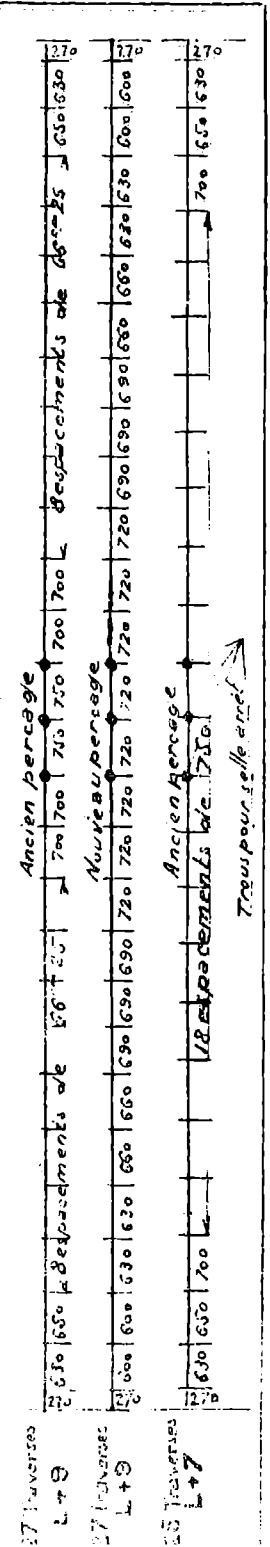 Ancien percage
27 Traverses
L+9
270 630 650 8 espacements de 66 25 700 700 750 750 700 700 8 espacements de 66cm25 650 630 270
Nouveau percage
27 Traverses
L+9
270 600 600 630 630 660 660 690 690 690 720 720 720 720 720 720 720 720 690 690 690 660 660 630 630 600 600 270
Ancien percage
Traverses
L+7
270 630 650 700 18 espacements de 750 700 650 630 270
Trous pour selle arrêt